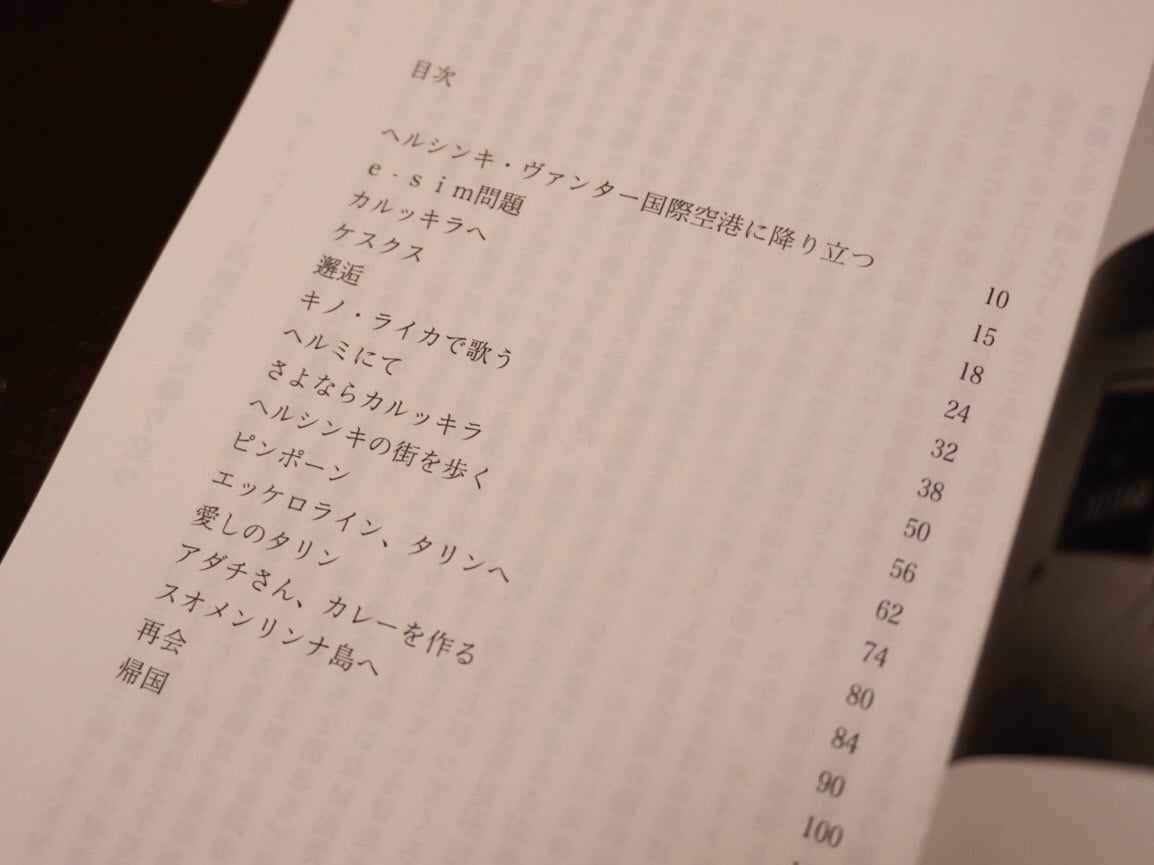 目次
ヘルシンキ・ヴァンター国際空港に降り立つ 10
e‐sim問題 15
カルッキラへ 18
ケスクス 24
邂逅 32
キノ・ライカで歌う 38
ヘルミにて 50
さよならカルッキラ 56
ヘルシンキの街を歩く 62
ピンポーン 74
エッケロライン、タリンへ 80
愛しのタリン 84
アダチさん、カレーを作る 90
スオメンリンナ島へ 100
再会
帰国